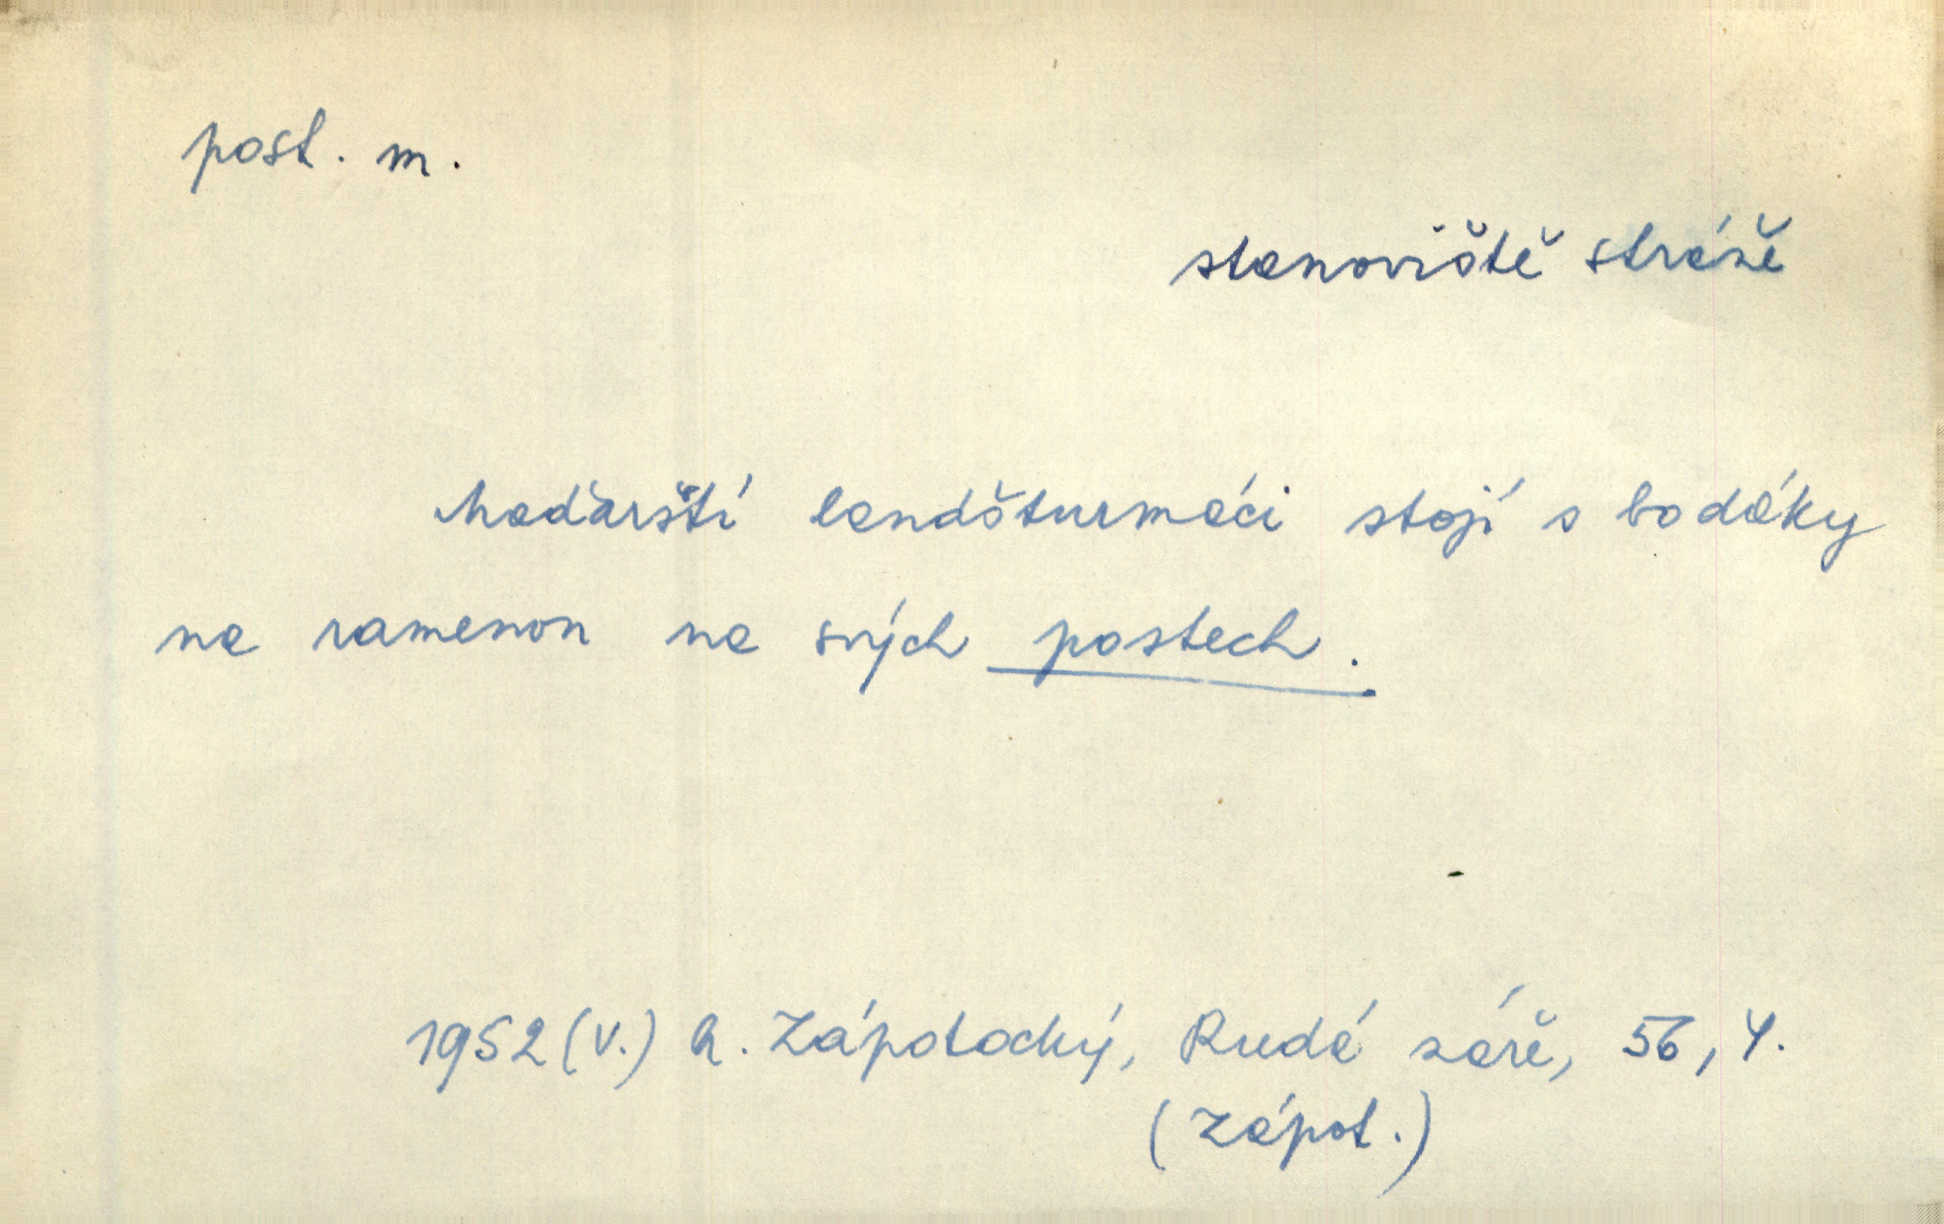 post. m.
stanoviště stráže
Maďarští landšturmáci stojí s bodáky
na ramenou na svých postech.
1952 (V.) A. Zápotocký, Rudá záře, 56, 4.
(Zápot.)